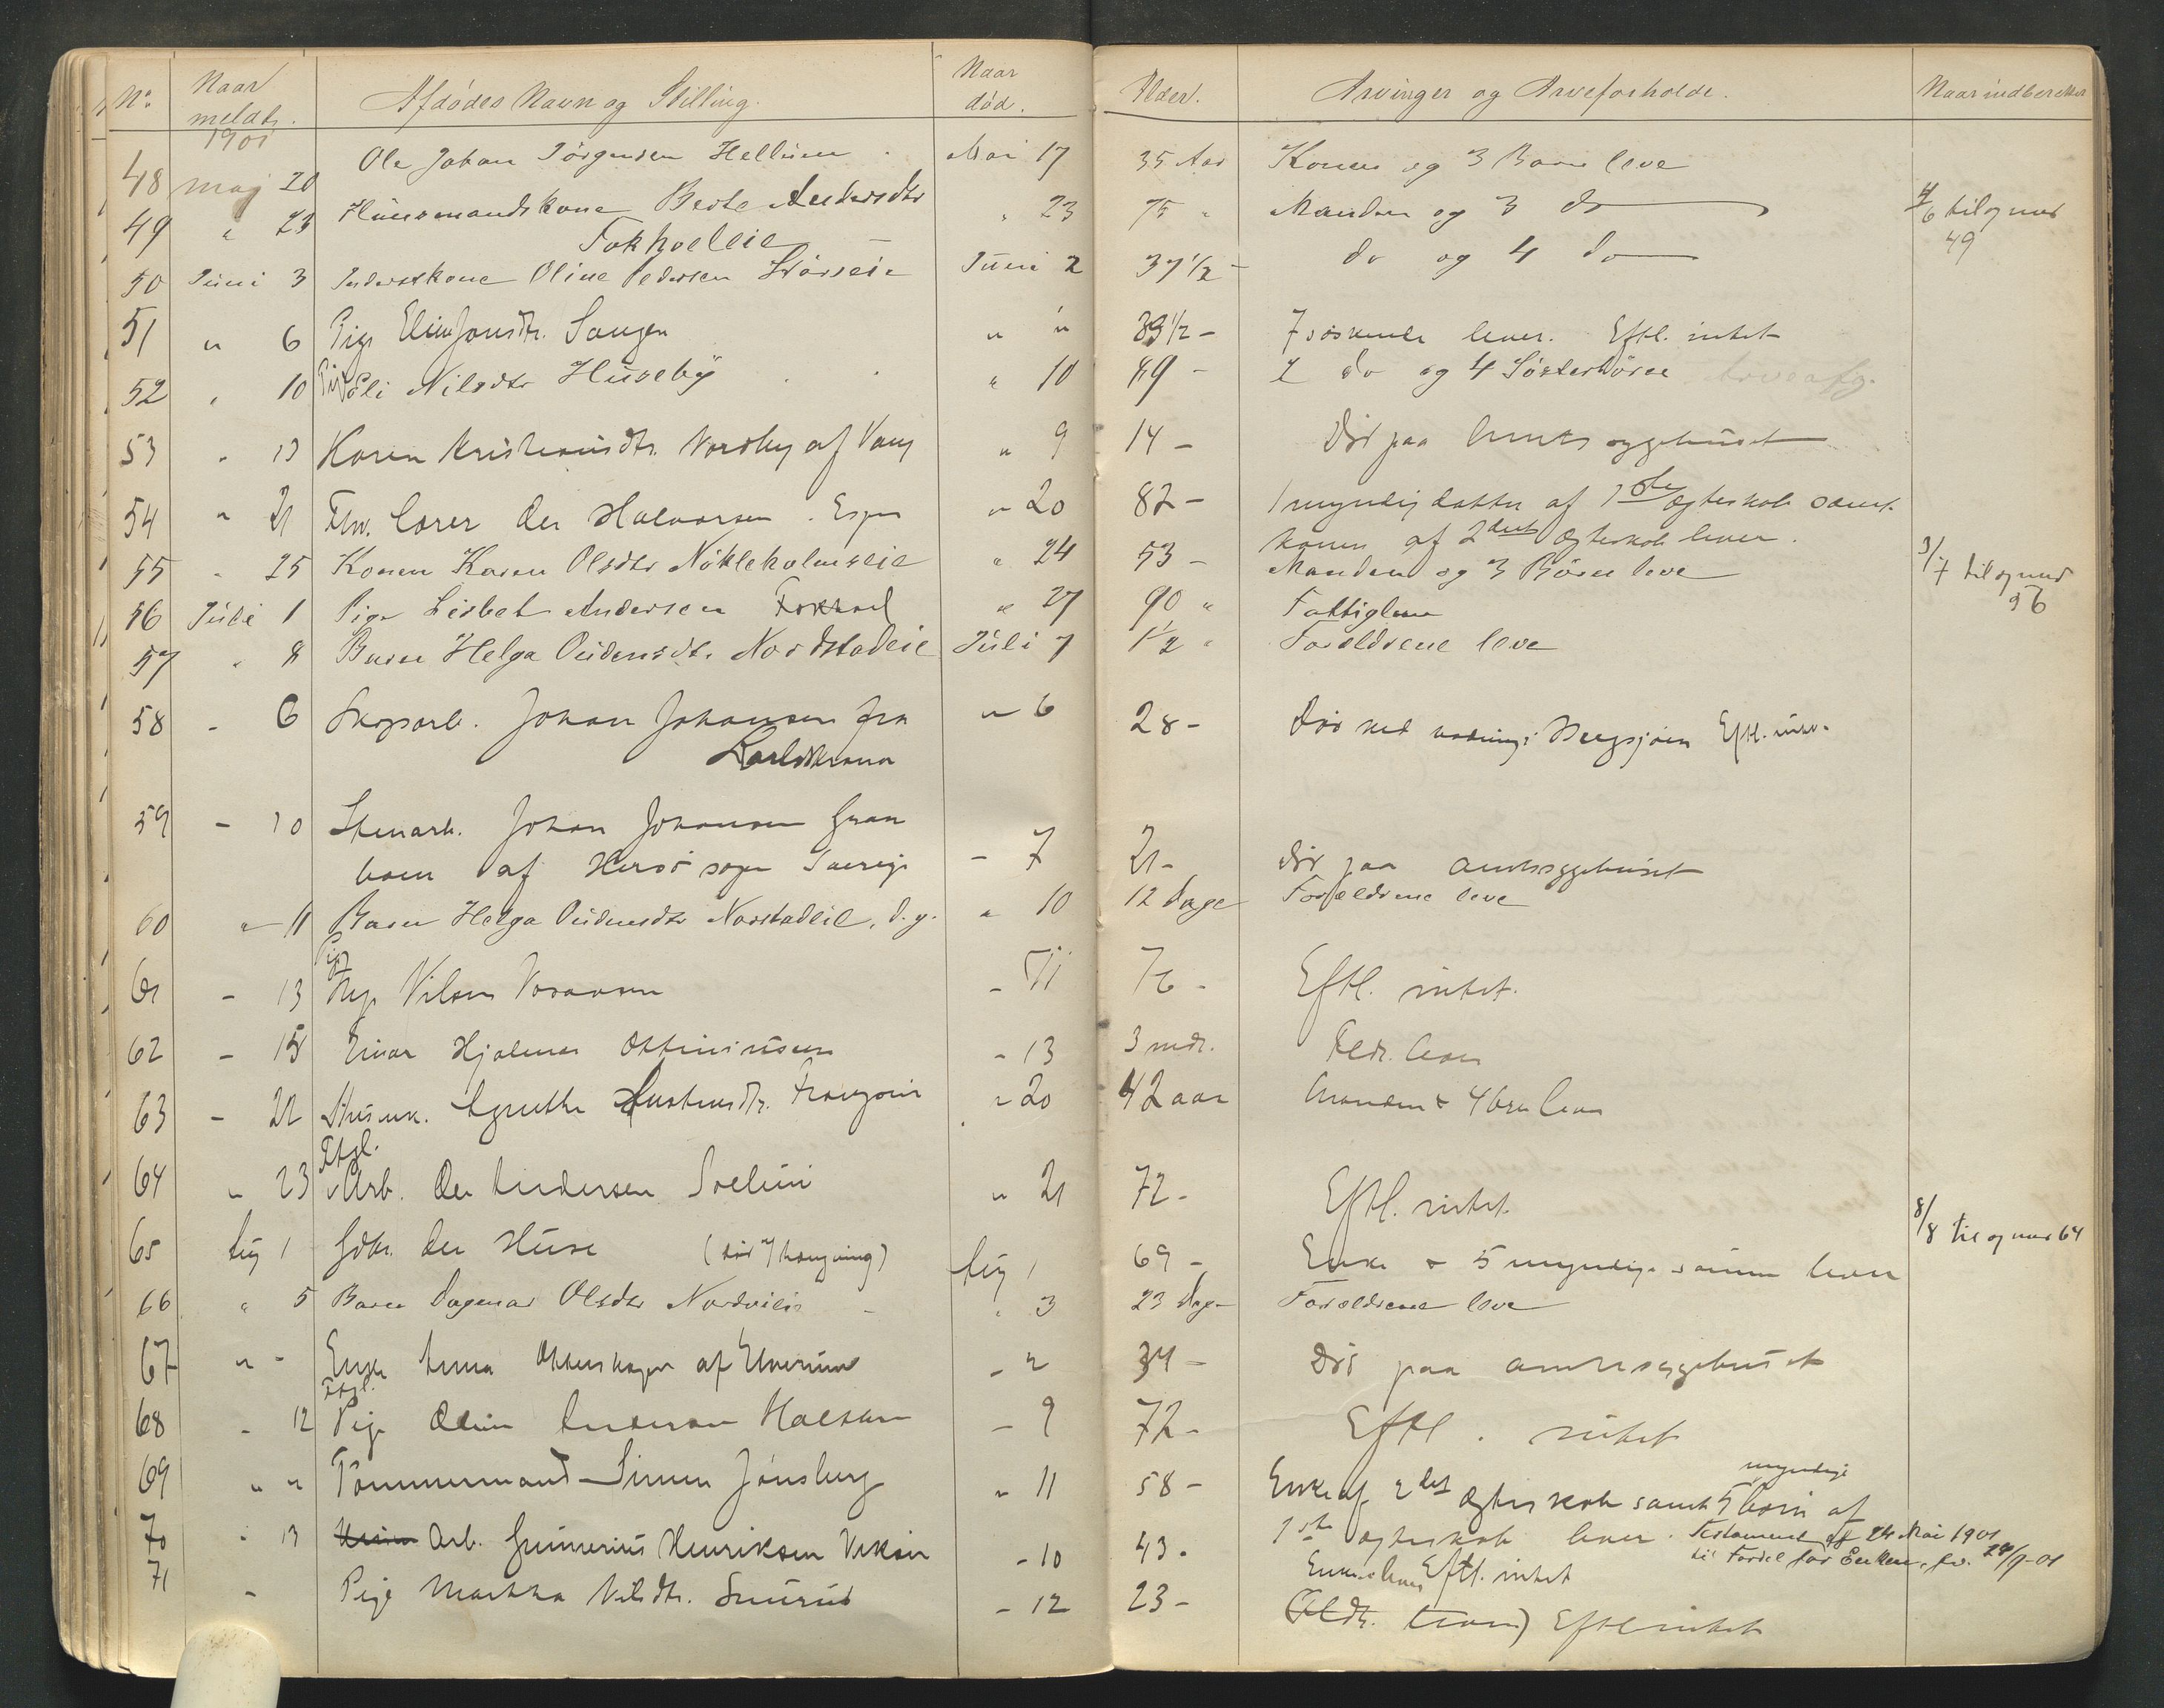 No. Naar meldt. Afdødes Navn og Stilling. Naar død. Alder. Arvinger og Arveforholde. Naar indberettet
1901
48 maj 20 Ole Johan Jørgensen Hellum Mai 17 35 Aar Konen og 3 Børn leve
49 " 23 Husmandskone Berte Andersdtr " 23 75 " Manden og 3 do 4/6 til og med
Fokholeie 49
50 Juni 3 Inderstkone Oline Pedersen Juni 2 37 1/2 - do og 4 do
51 " 6 Pige Jonsdtr. " " 33 1/2 - 7 søskende lever. Eftl. intet
52 " 10 Pige Eli Nilsdtr Huseby " 10 89 - 2 do og 4 Søsterbørn Arveafg.
53 " 13 Karen Kristiansdtr. Nordby af Vang " 9 14 - Død paa Amtssygehuset
54 " 21 Flw. Lærer Ole Halvorsen Espe " 20 82 - 1 myndig datter af 1ste Ægteskab samt
konen af 2det Ægteskab lever.
55 " 25 Konen Karen Olsdtr Nökleholmseie " 24 53 - Manden og 3 Börn leve 3/7 til og med
56
56 Juli 1 Pige Lisbet Andersen Fokhol " 27 90 " Fattiglem
57 " 8 Barn Helga Oudensdtr. Nordstadeie Juli 7 1/2 " Forældrene leve
58 - 6 Skogsarb. Johan Johansen fra " 6 28 - Død ved badning i Eftl. intet
Karlskrona
59 - 10 Stenarb. Johan Johanson Gran
bom af sogn Sverige - 7 21 - død paa amtssygehuset
60 " 11 Barn Helga Oudensdtr Norstadeie, d.y. " 10 12 Dage Forældrene leve
61 - 13 Pige Nilsen - 11 76 - Eftl. intet.
62 - 15 Einar Hjalmar - 13 3 mdr. Fldr. lever
63 - 22 Agnethe " 20 42 aar Manden & 4 børn lever
64 " 23 Ftgl. Arb. Ole Andersen Solum " 21 72 - Eftl. intet
8/8 til og med 64
65 Aug 1 Gdbr. Ole Huse (død v/ hængning) Aug 1 69 - Enke & 5 myndige sønner lever
66 " 5 Barn Dagmar Olsdtr " 3 23 Dage Forældrene leve
67 " - Enke Anna af Elverum - 2 34 - Død paa amtssygehuset
68 - 12 Ftgl. Pige Andersen - 9 72 - Eftl. intet
69 " " Tømmermand Simen Jönsberg " 11 58 - Enke af 2det Ægteskab samt 5 myndige børn af
1ste ægteskab lever. Testament af Mai 1901
til Fordel for Enken,
70 " 13 Arb. Gunerius Henriksen - 10 43 - Enken lever Eftl. intet
71 - Pige Martha Nilsdtr. Snurud - 12 23 - (Fldr. lever) Eftl intet